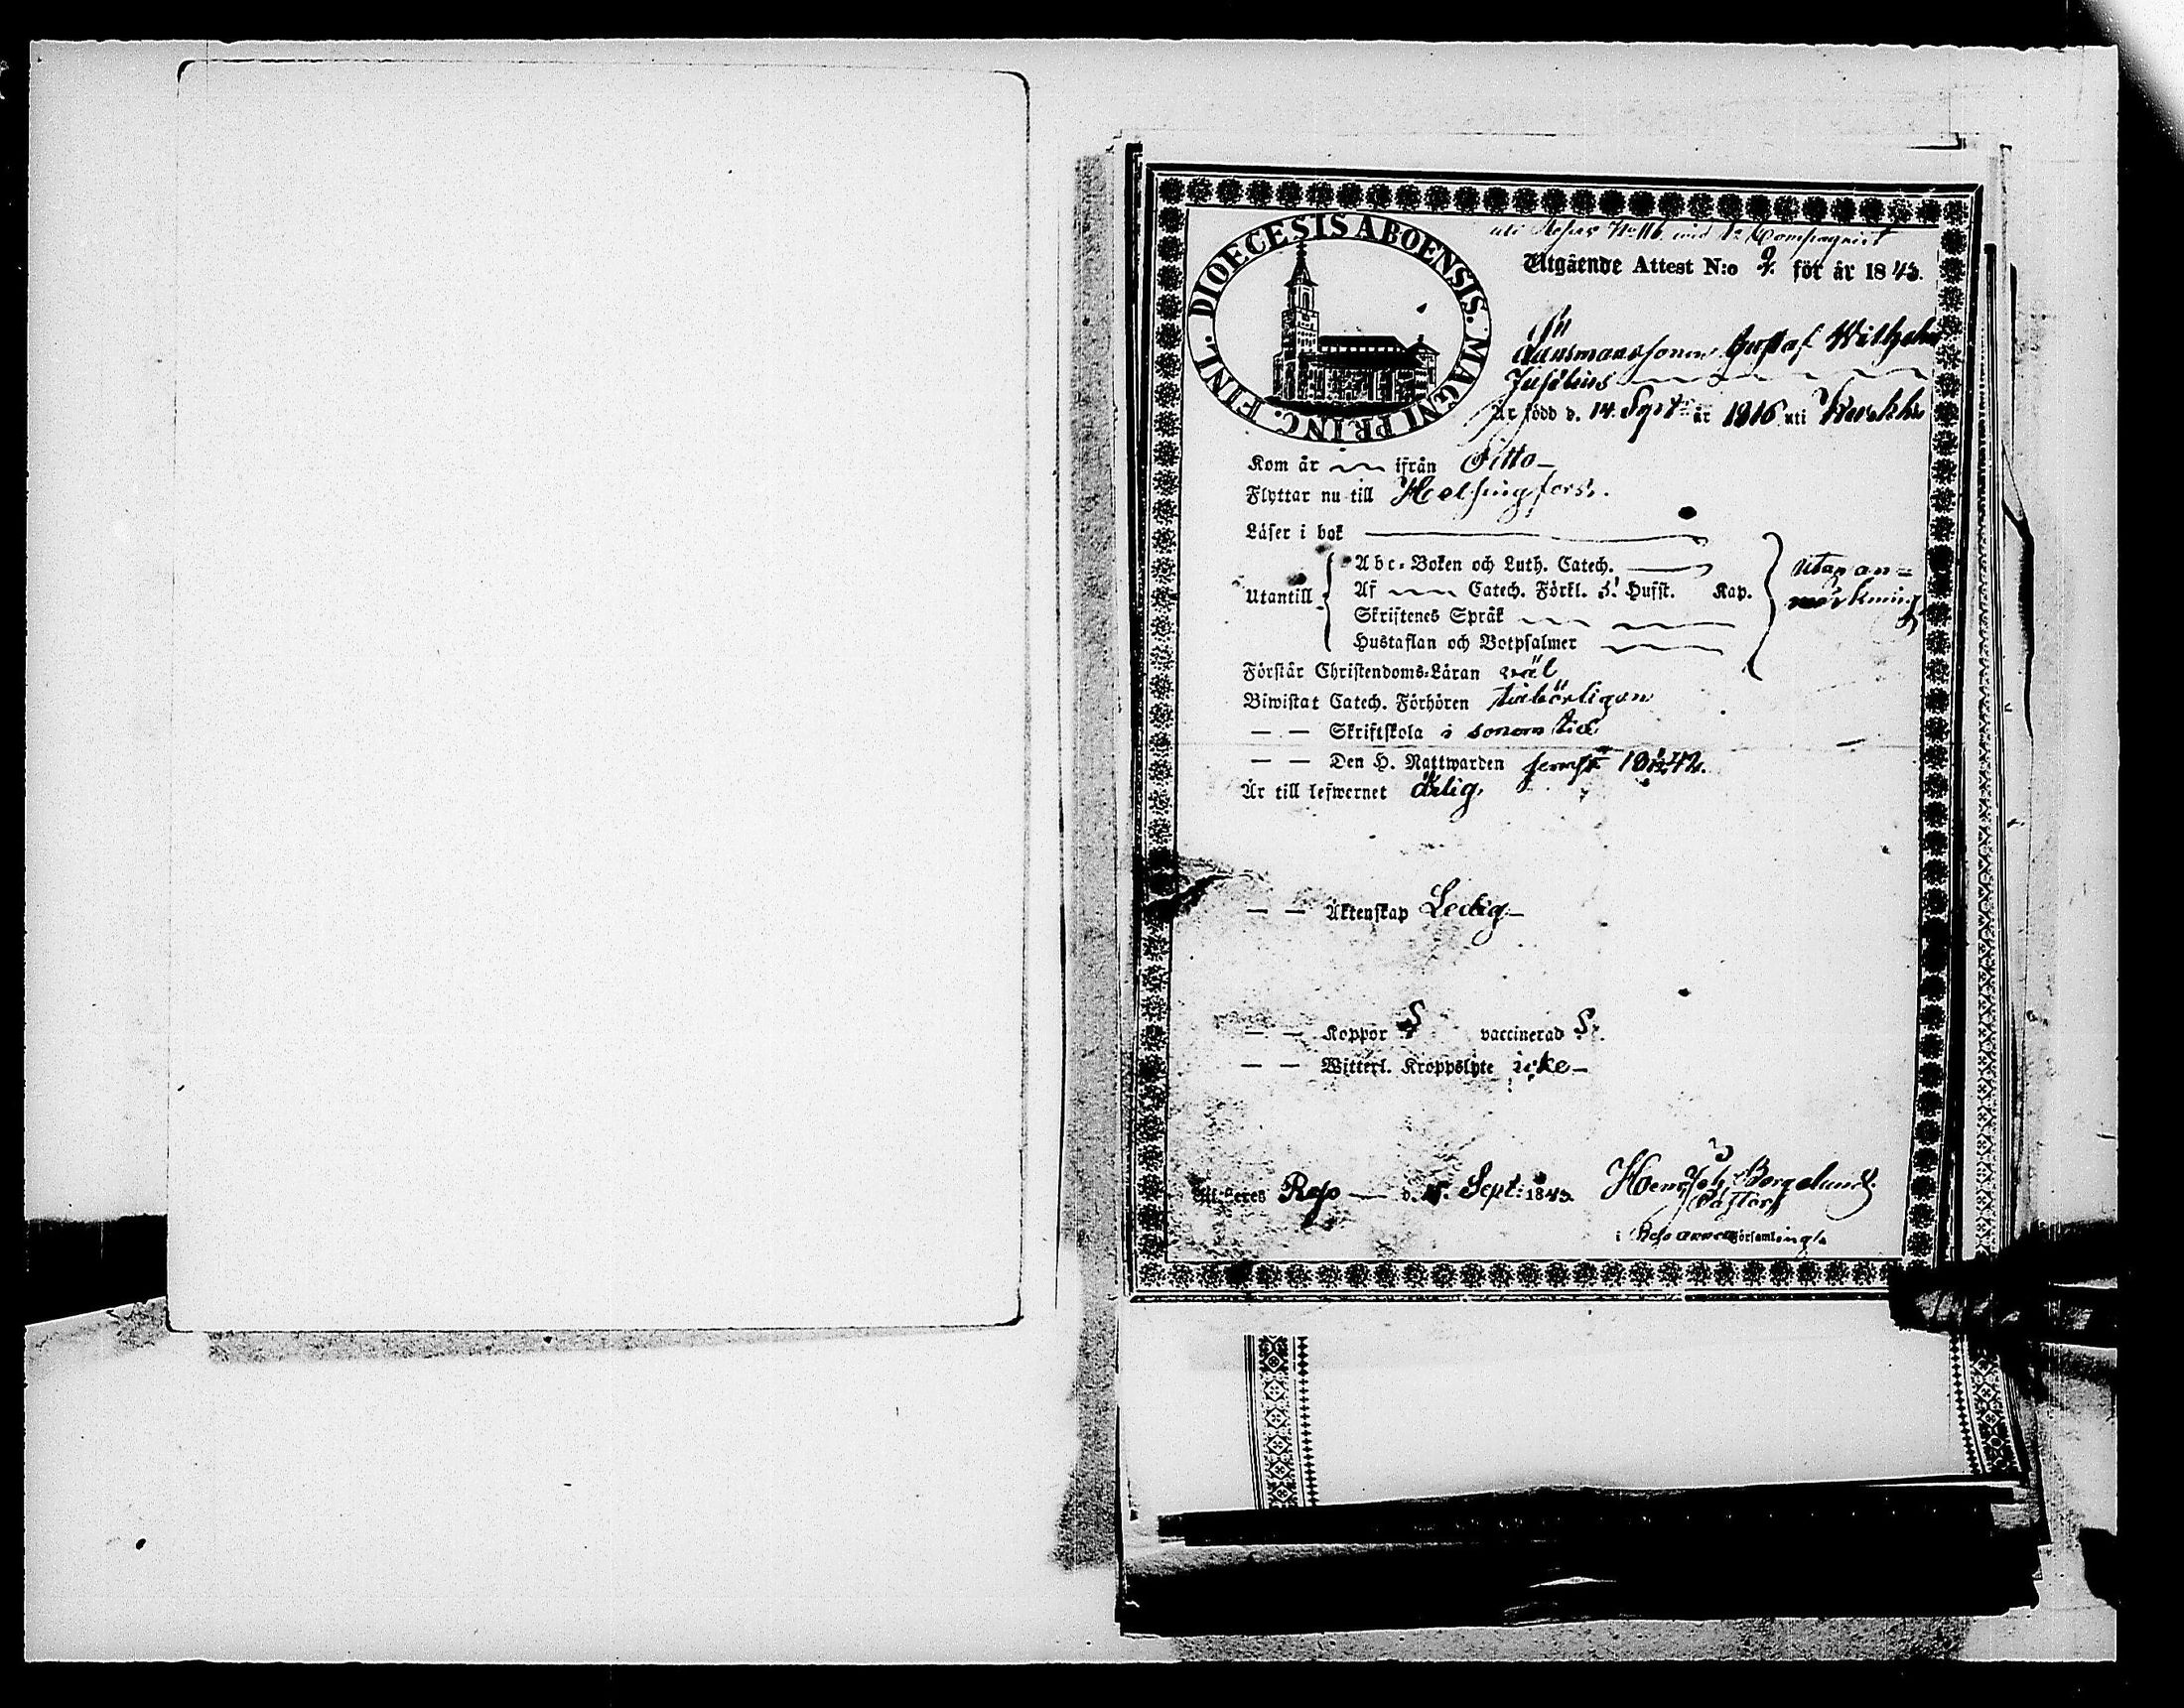 DIOECESIS ABOENSIS. MAGNI PRINC. FINL.
uti No 116 wid Compagniet
Utgående Attest N:o 9. för år 1843.
Gustaf Wilhelm
Juselius
Är född d. 14. Sept: år 1816 uti
Kom år ifrån Ditto
Flyttar nu till Helsingfors.
Läser i bok
Utantill
Abc-Boken och Luth. Catech.
Af Catech. Förkl. 5. Hufst. Kap.
Skriftenes Språk
Hustaflan och Botpsalmer
utan an=
märkning
Förstår Christendoms-Läran väl
Biwistat Catech. Förhören tillbörligen
— — Skriftskola i sonom tid
— — Den H. Nattwarden senast 1842.
Är till lefwernet ärlig.
— — Äktenskap Ledig
— — Koppor vaccinerad
— — Witterl. Kroppslyte icke
Reso d. Sept: 1843.
Borgelund
Pastor
i Reso Församling